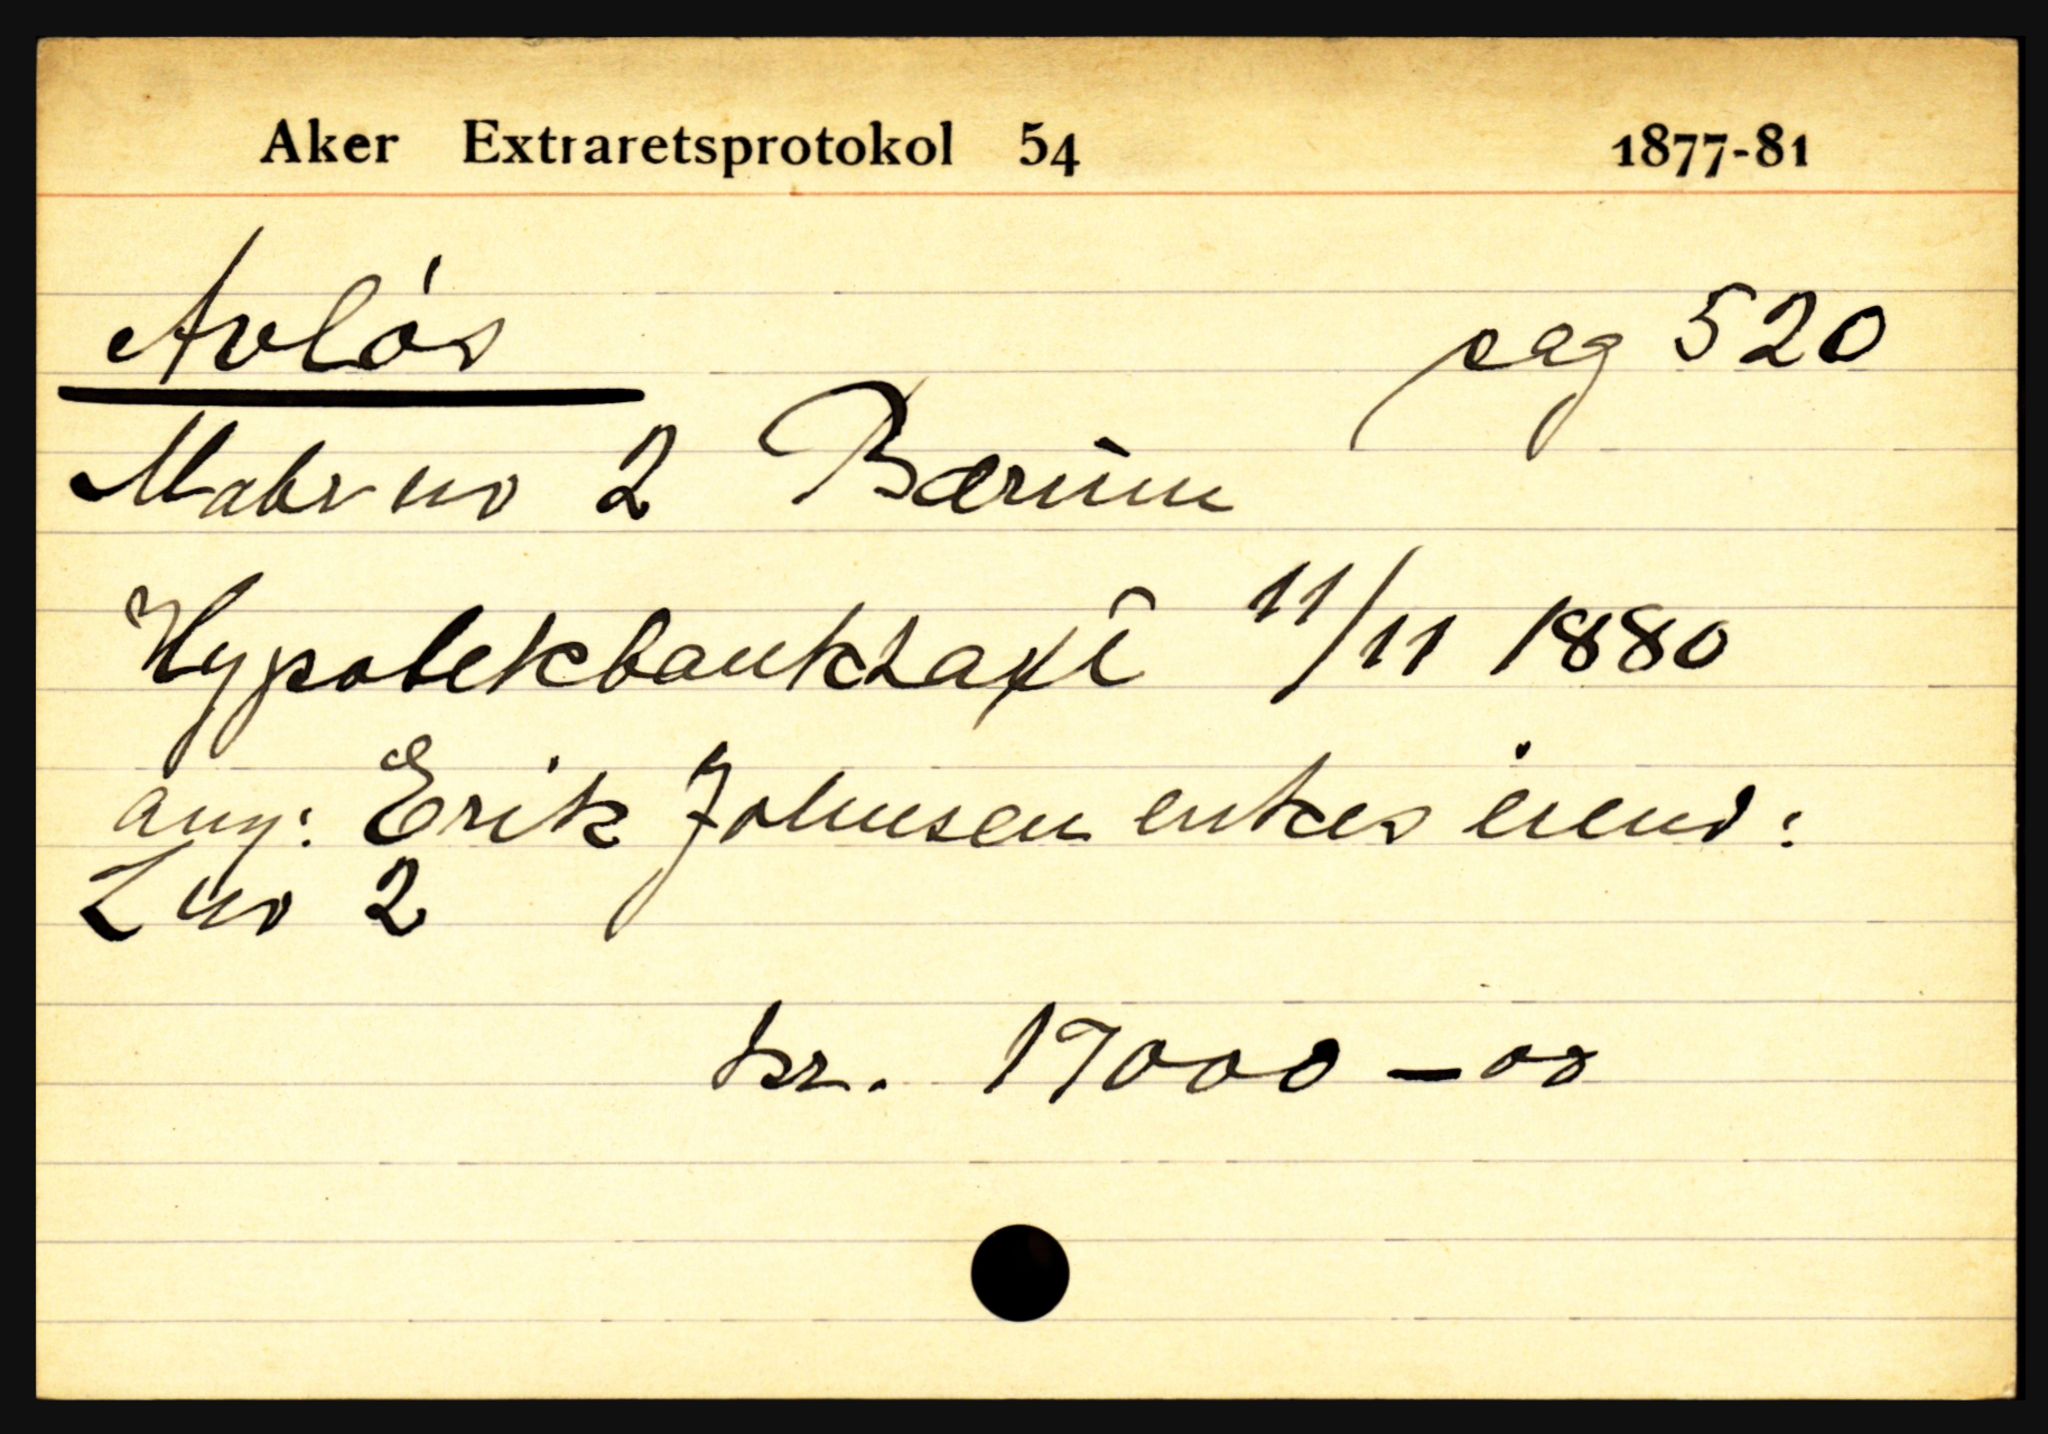 Aker Extraretsprotokol 54 1877-81
Avløs pag 520
Matr no 2 Bærum
Hypotekbanktaxt 11/11 1880
ang: Erik Johnsen enkes eiend:
L no 2
kr. 17000-00